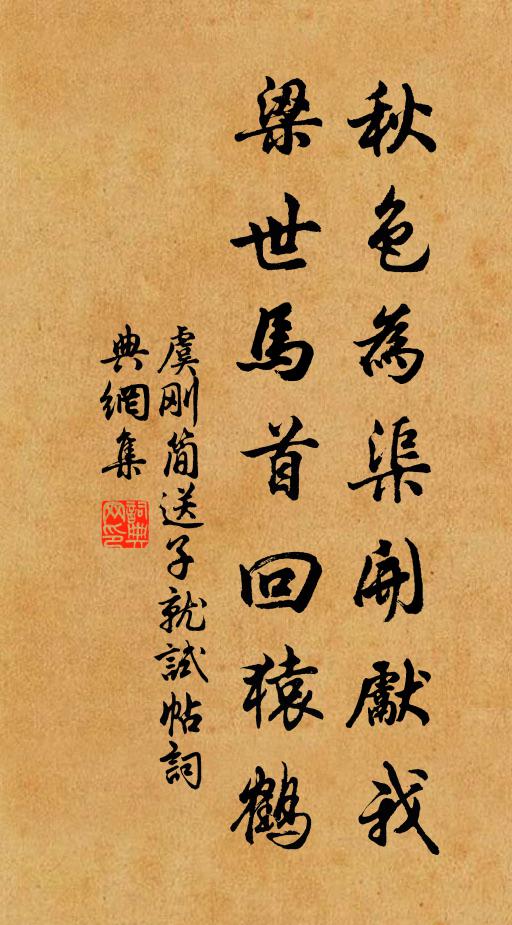 秋色為渠開獻我
梁世馬首回猿鶴
虞剛简送子就試帖詞
典網集
詞典網印